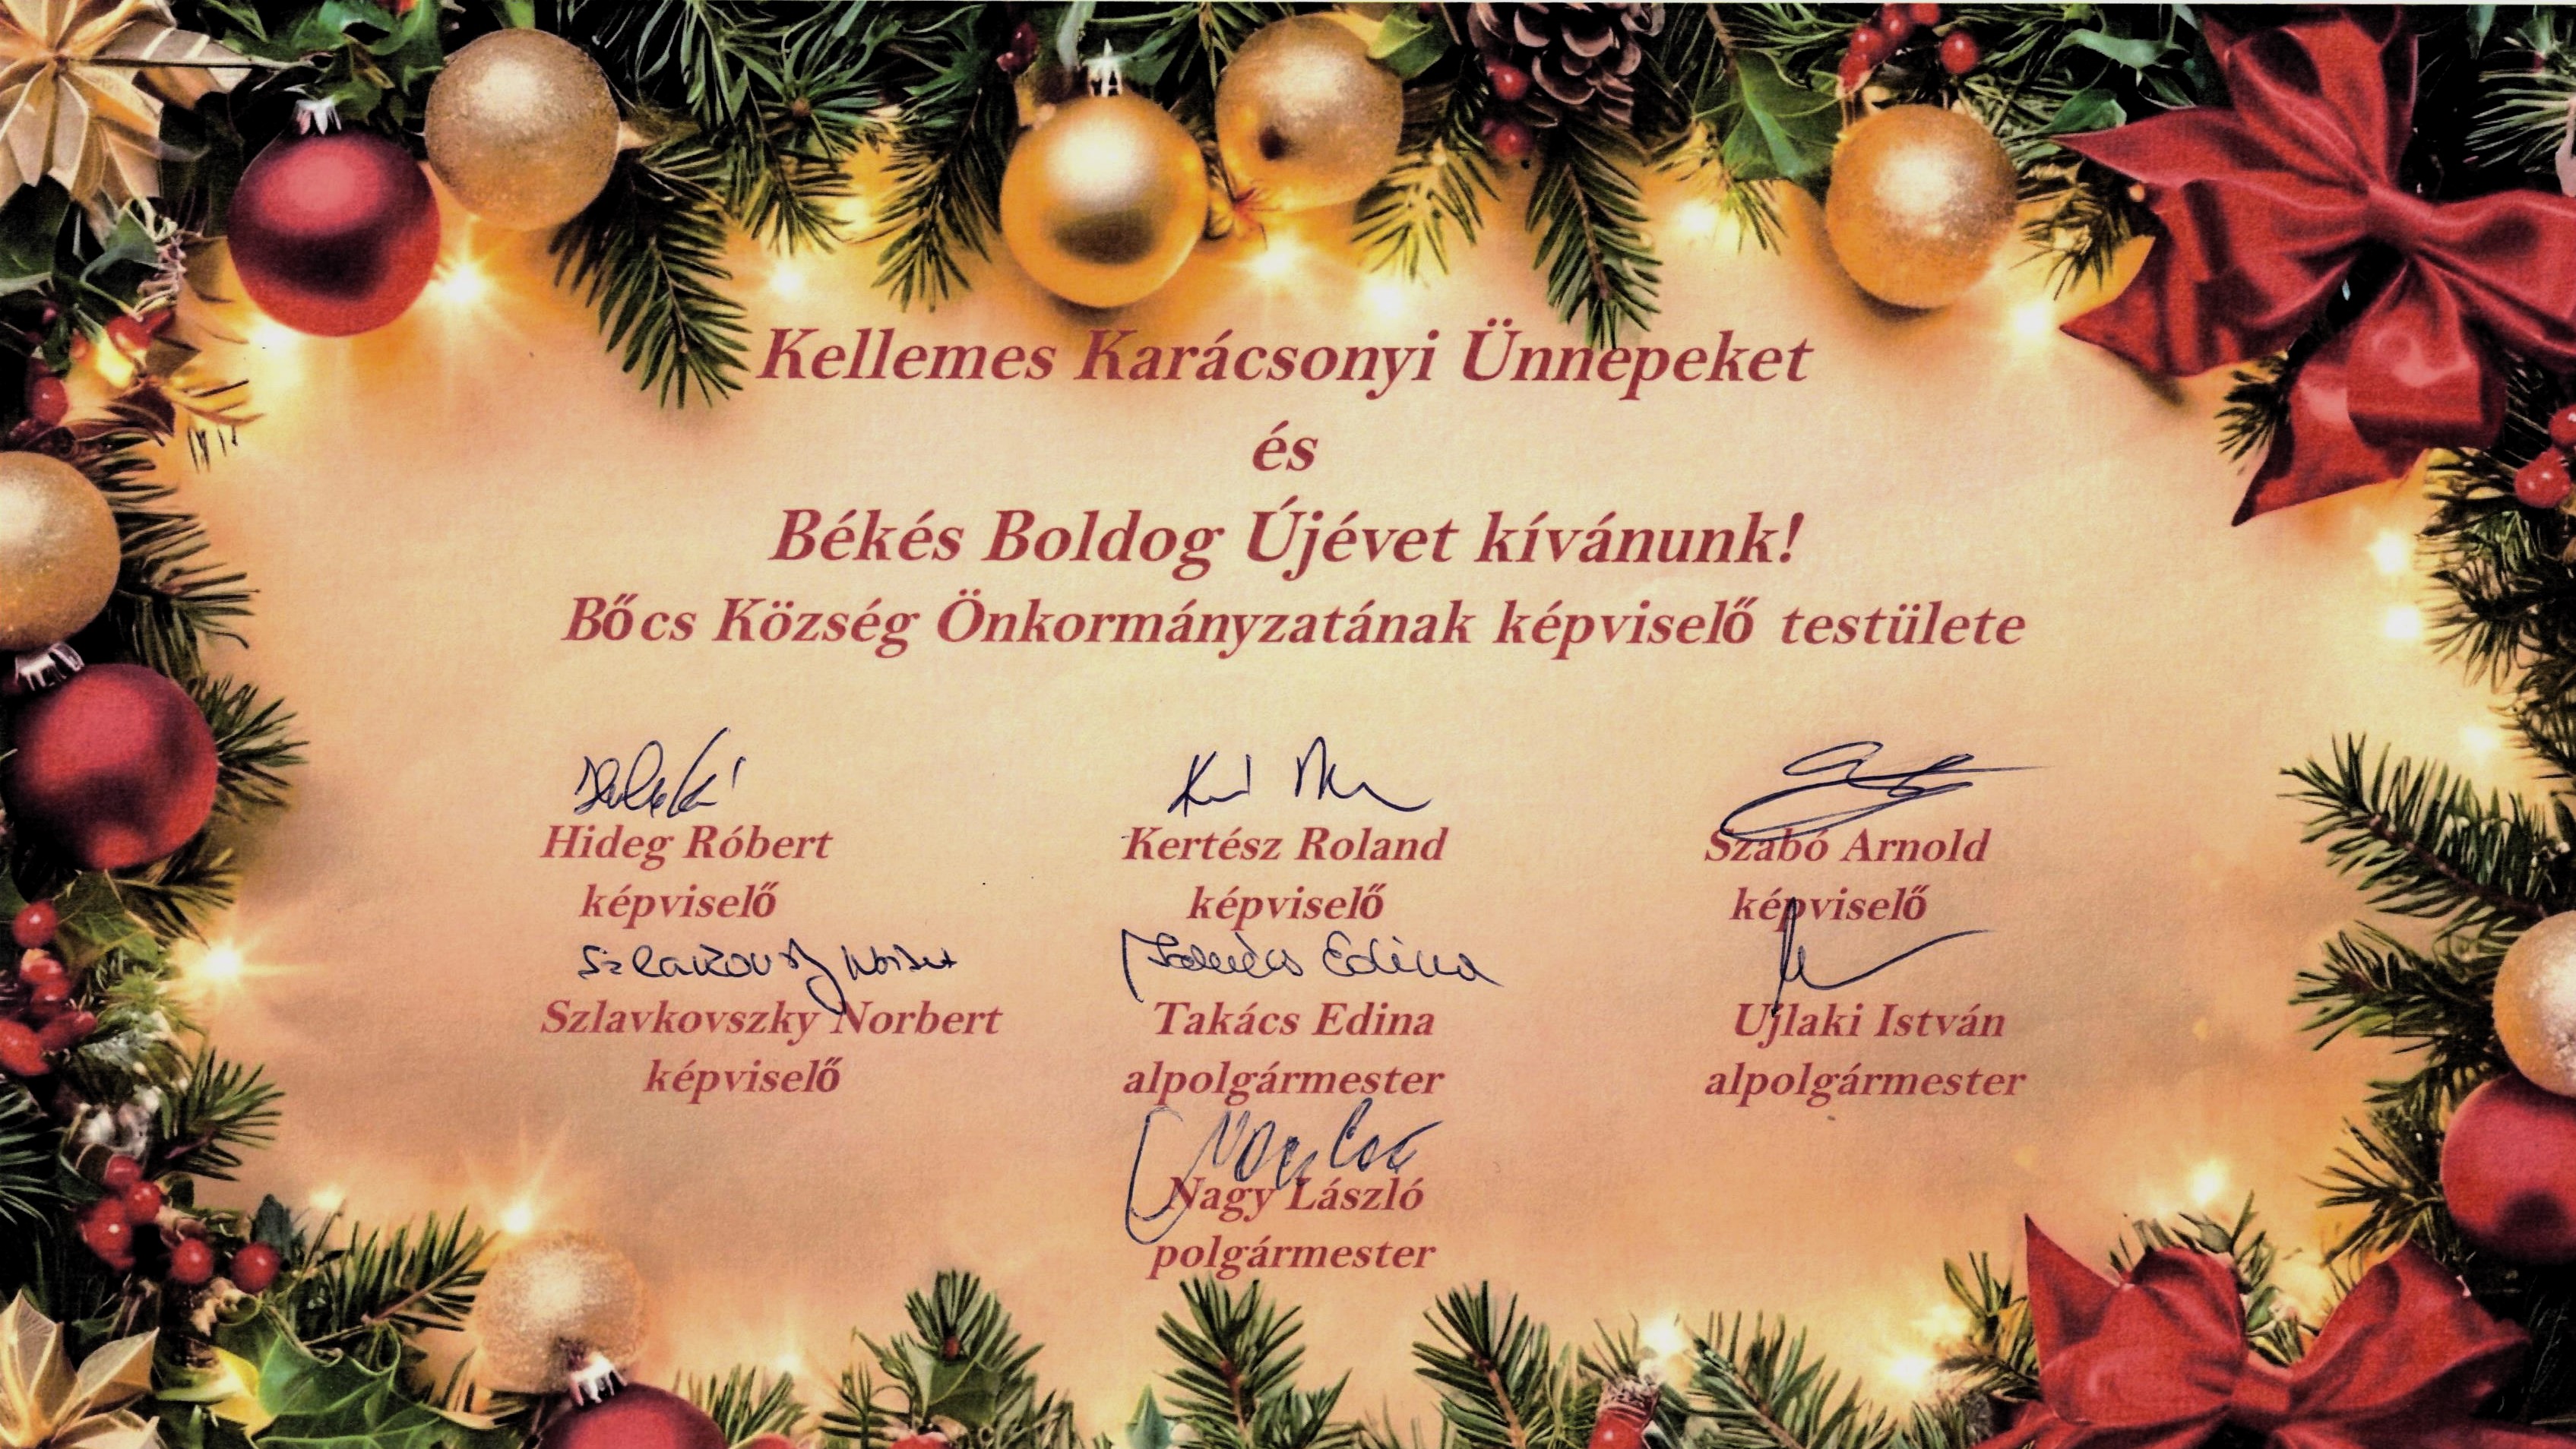 Kellemes Karácsonyi Ünnepeket
és
Békés Boldog Újévet kívánunk!
Bőcs Község Önkormányzatának képviselő testülete
Hideg Róbert
képviselő
Kertész Roland
képviselő
Szabó Arnold
képviselő
Szlavkovszky Norbert
Takács Edina
Szlavkovszky Norbert
képviselő
Takács Edina
alpolgármester
Ujlaki István
alpolgármester
Nagy László
polgármester